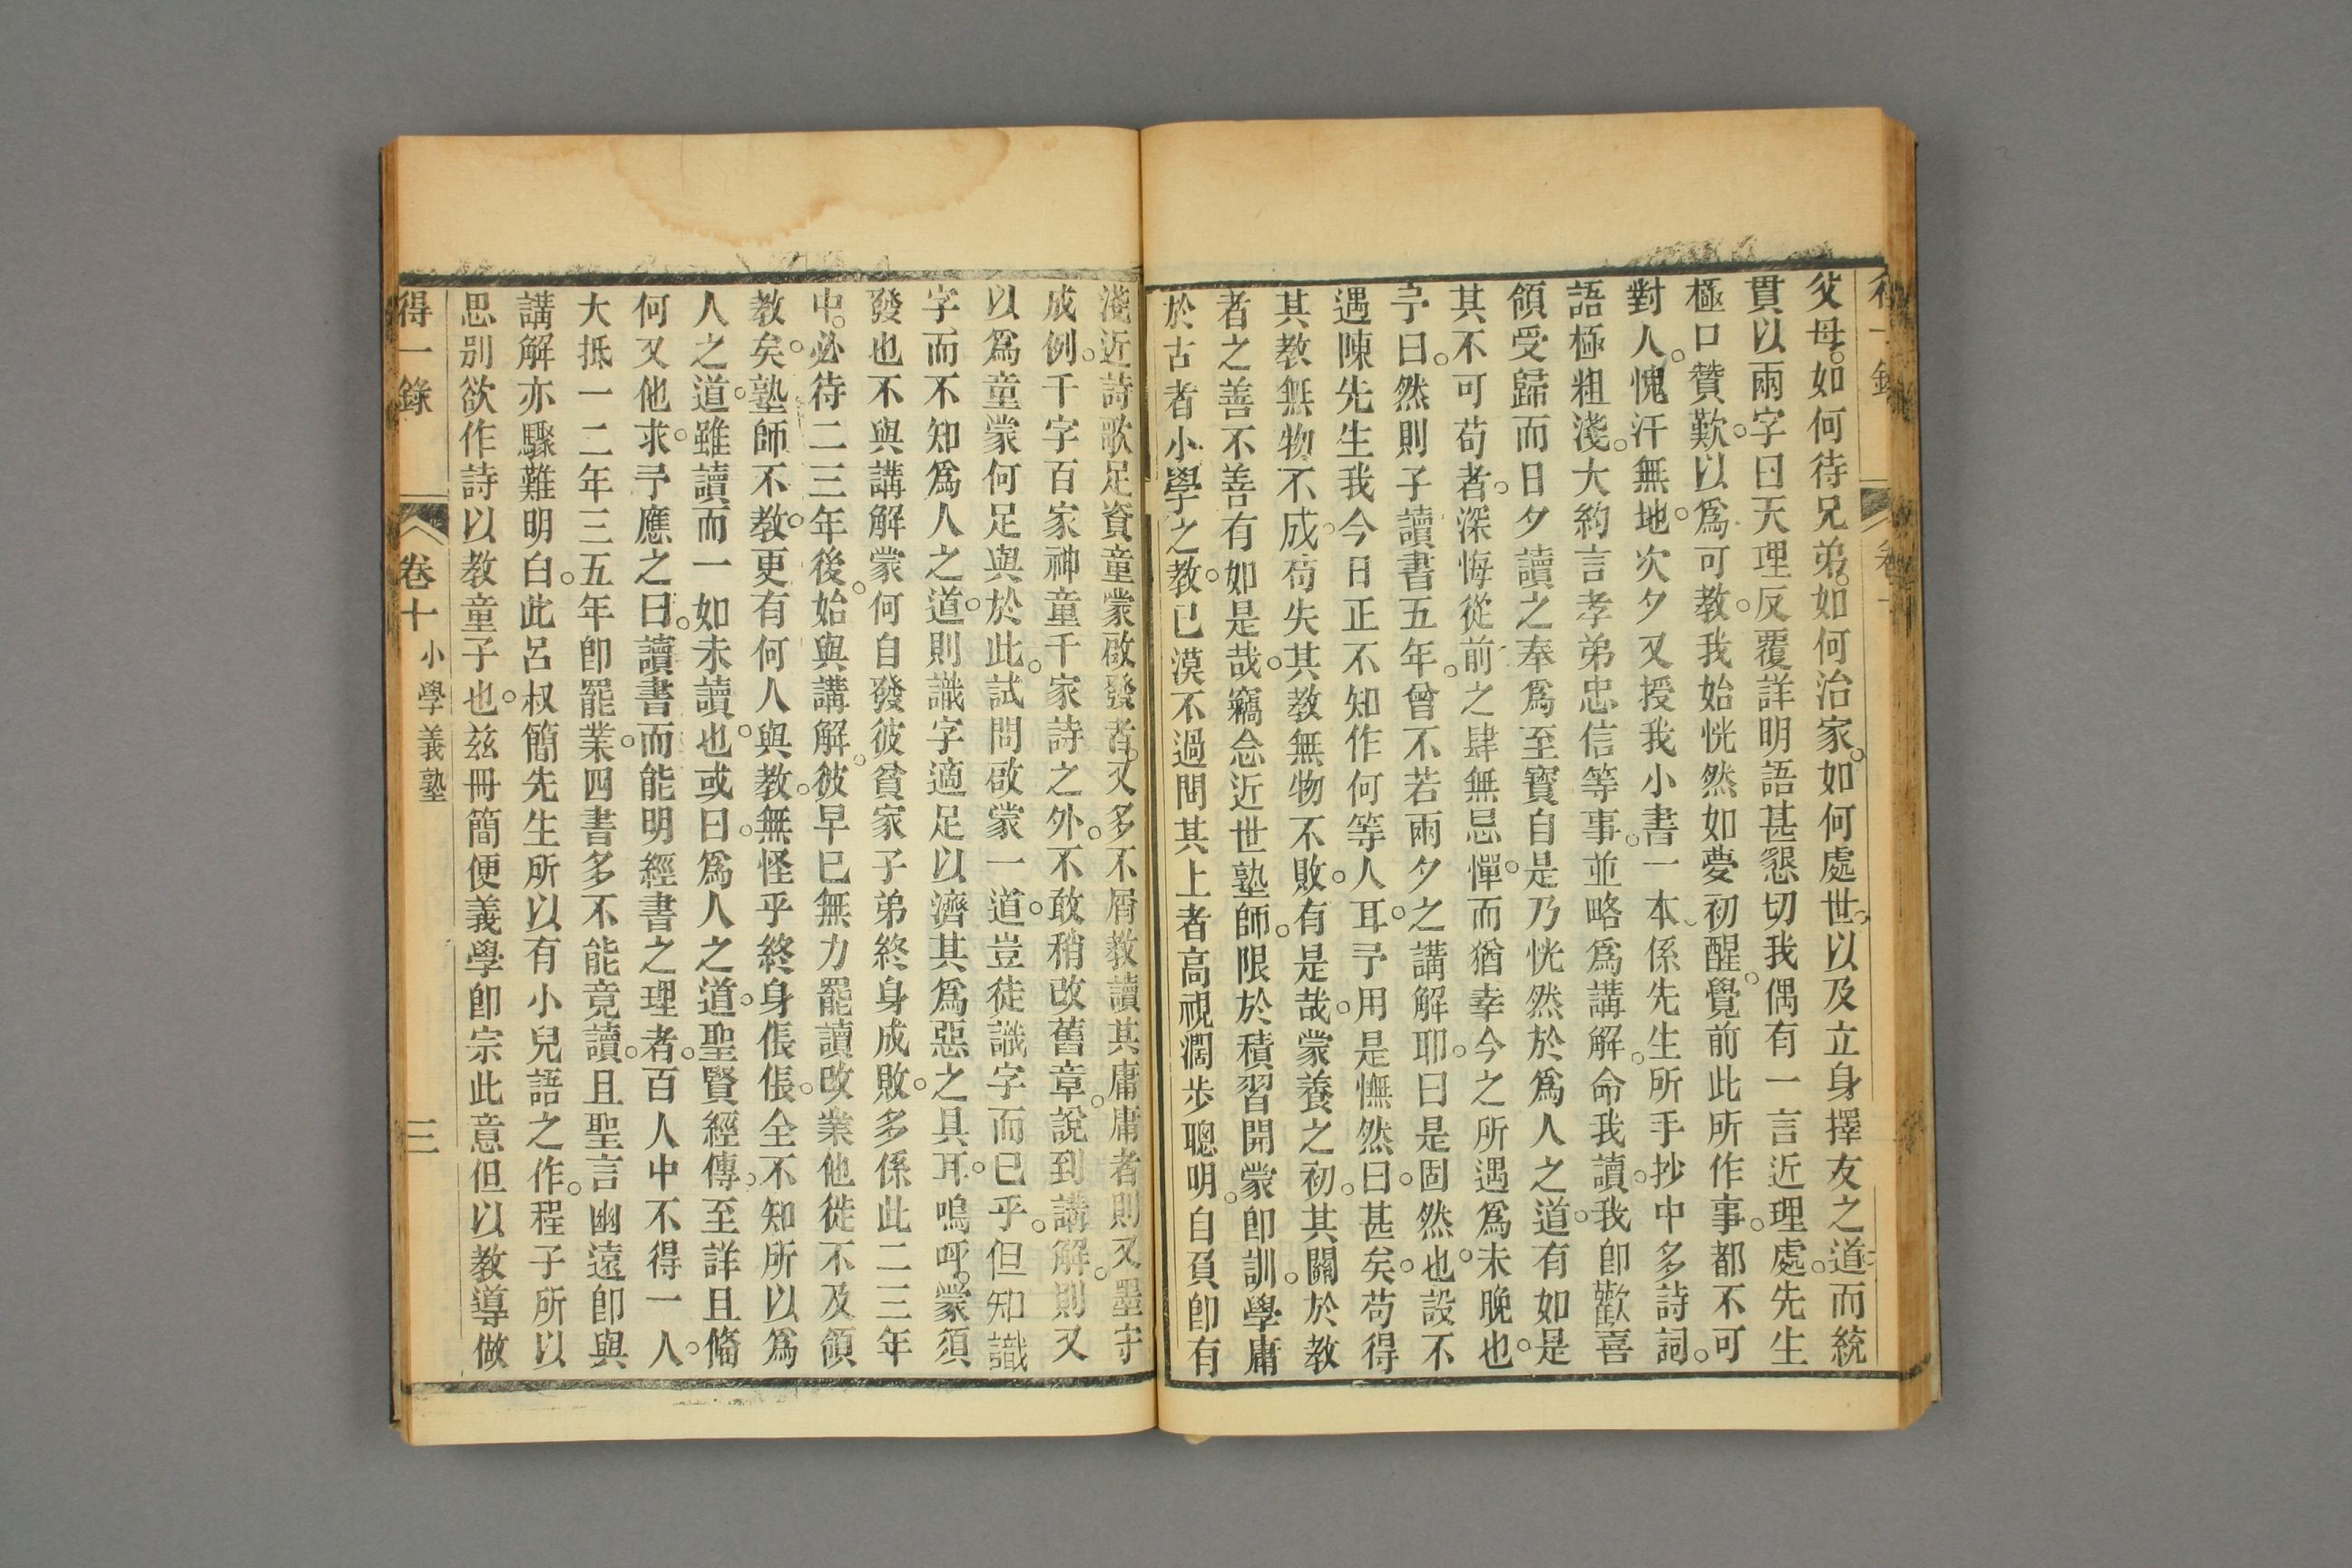 父母。如何待兄弟。如何治家。如何處世。以及立身擇友之道而統
貫以兩字曰天理反覆詳明語甚懇切我偶有一言近理處。先生
極口贊歎。以爲可教。我始恍然如夢初醒。覺前此所作事。都不可
對人。愧汗無地。次夕又授我小書一本係先生所手抄中多詩詞。
語極粗淺。大約言孝弟忠信等事。並略爲講解。命我讀。我卽歡喜
領受歸而日夕讀之奉爲至寶自是乃恍然於爲人之道。有如是
其不可苟者。深悔從前之肆無忌憚。而猶幸今之所遇爲未晚也。
予曰。然則子讀書五年。曾不若兩夕之講解耶。曰是固然也。設不
遇陳先生我今日正不知作何等人耳。予用是憮然曰。甚矣。苟得
其教無物不成。苟失其教無物不敗。有是哉。蒙養之初。其關於教
者之善不善有如是哉。竊念近世塾師。限於積習開蒙卽訓。學庸
於古者小學之教。已漠不過問其上者高視濶步聰明。自負卽有
淺近詩歌足資童蒙啟發者。又多不屑教讀其庸庸者則又墨守
成例。千字百家神童千家詩之外。不敢稍改舊章。說到講解。則又
以爲童蒙何足與於此。試問啟蒙一道。豈徒識字而已乎。但知識
字而不知爲人之道。則識字適足以濟其爲惡之具耳。嗚呼。蒙須
發也不與講解蒙何自發彼貧家子弟終身成敗。多係此二三年
中。必待二三年後。始與講解。彼早已無力罷讀改業他徙不及領
教矣。塾師不教。更有何人與教。無怪乎終身倀倀。全不知所以爲
人之道。雖讀而一如未讀也。或曰。爲人之道。聖賢經傳。至詳且備
何又他求。予應之曰。讀書而能明經書之理者。百人中不得一人。
大抵一二年三五年卽罷業。四書多不能竟讀。且聖言幽遠卽與
講解亦驟難明白。此呂叔簡先生所以有小兒語之作。程子所以
思別欲作詩以教童子也。茲冊簡便義學卽宗此意但以教導做
得一錄
卷十
小學義塾
三